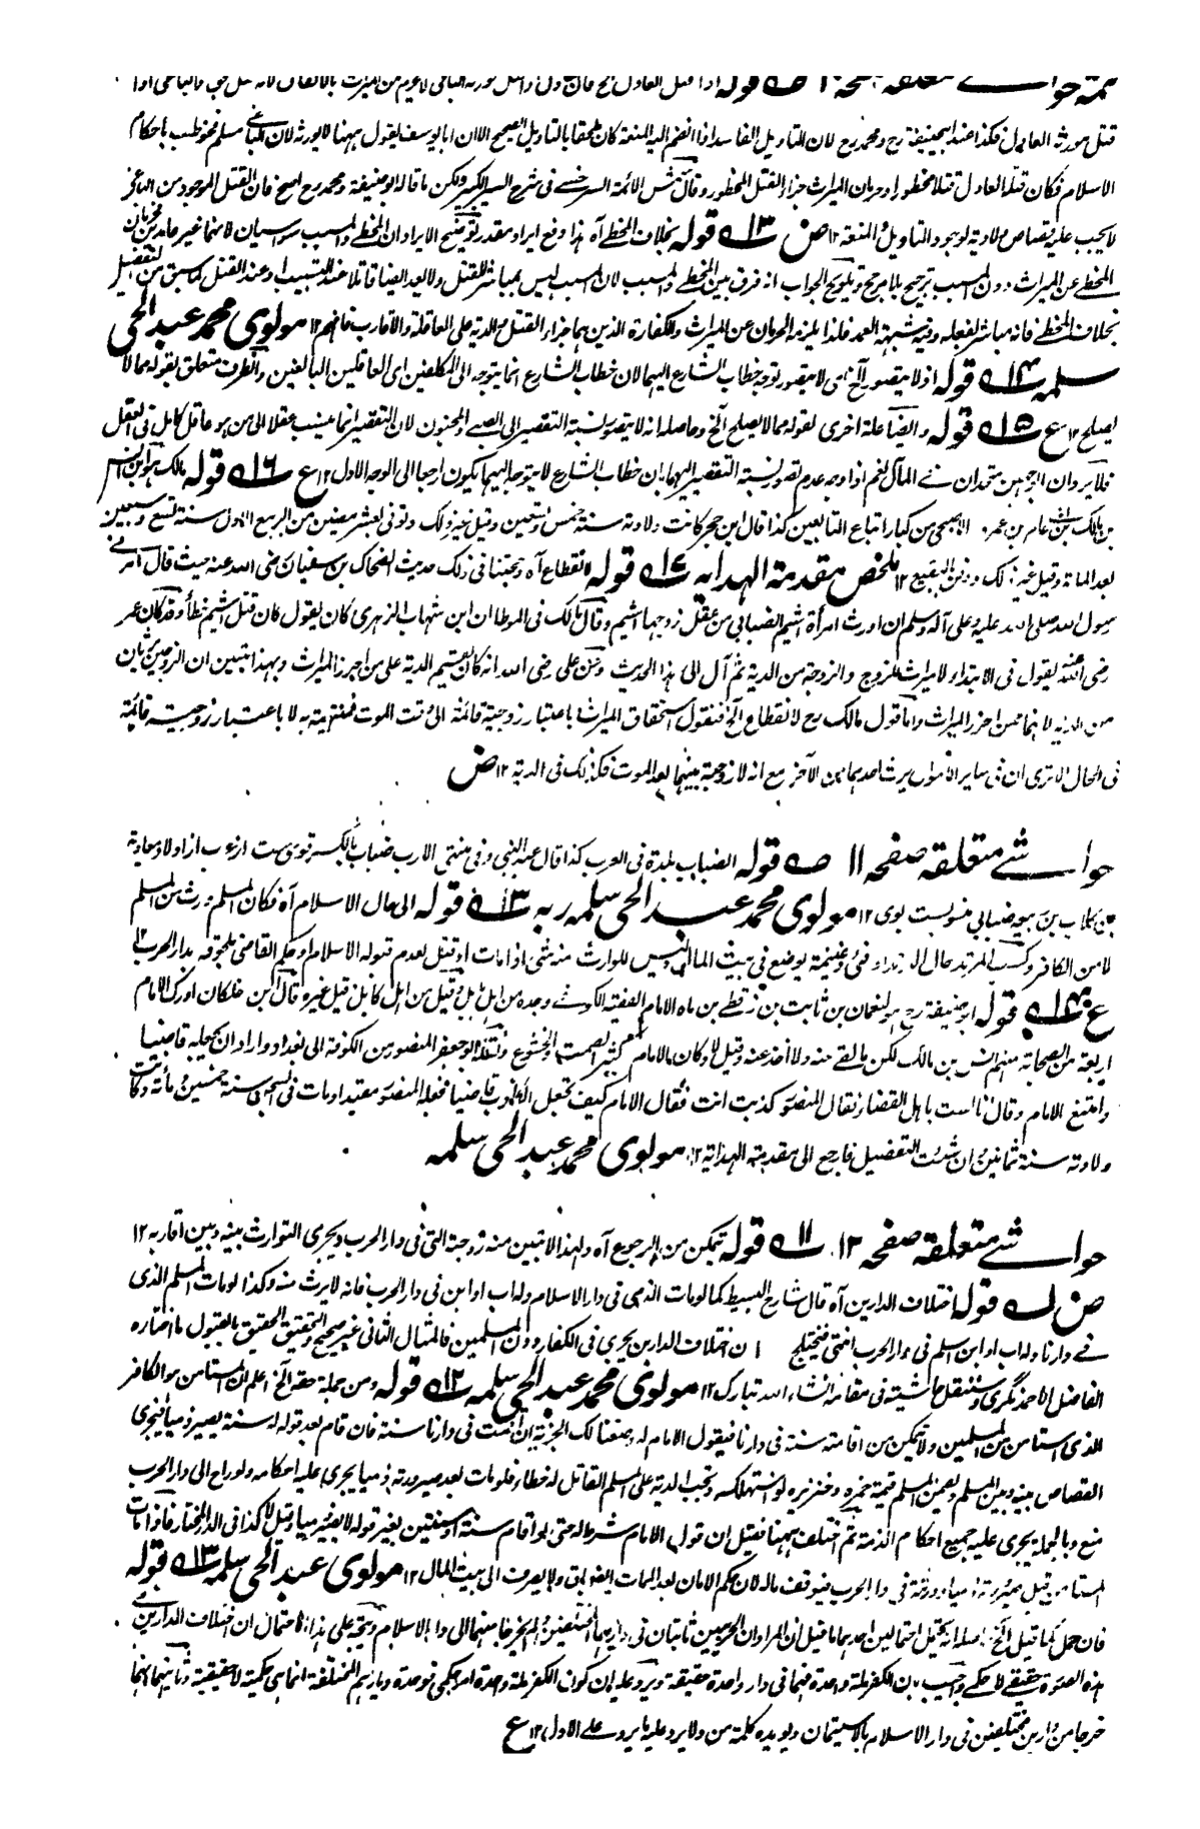 تتمة حواشے متعلقه صفحه ۱۰ صـه قوله اذا قتل العادل
قتل مورثه العادل فكذا عند ابيحنيفة رح ومحمد رح لان التاويل الفاسد اذا انضم اليه المنعة كان ملحقا بالتاويل الصحيح الا ان ابا يوسف يقول ههنا لا يورثه لان الباغي مسلم مخاطب باحكام
الاسلام فكان قتله العادل قتلا محظورا وحرمان الميراث جزاء القتل المحظور وقال شمس الائمة السرخسے فى شرح السير الكبير ولكن ما قاله ابو حنيفة ومحمد رح اصح فان القتل الموجود من الباغى
لا يجب عليه قصاص ولا دية لوجود التاويل والمنعة ۱۲ ض ۱۳ـه قوله بخلاف المخطے آه هذا دفع ايراد مقدر توضيح الايراد ان المخطے والمسبب سواسيان لانهما غير عامدين
المخطے عن الميراث دون المسبب ترجيح بلا مرجح وتلويح الجواب انه فرق بين المخطے والمسبب لان المسبب ليس بمباشر للقتل ولا يعد ايضا قاتلا عند التسبيب او عند القتل كما سبق من التفصيل
بخلاف المخطے فانه مباشر لفعله وفيه شبهة العمد فلذا يلزمه الحرمان عن الميراث والكفارة الذين هما جزاء القتل مع الدية على العاقلة والاقارب فافهم ۱۲ مولوى محمد عبد الحى
سلمه ۱۴ـه قوله اذ لا يتصور الخ اى لا يتصور توجه خطاب الشارع اليهما لان خطاب الشارع انما يتوجه الى المكلفين اى العاقلين البالغين والظرف متعلق بقوله مما لا
يصلح ۱۲ ع ۱۵ـه قوله وايضا علة اخرى لقوله مما لا يصلح الخ وحاصله انه لا يتصور نسبة التقصير الى الصبے والمجنون لان التقصير انما ينسب عقلا الى من هو عاقل كامل فى العقل
فلا يرد ان الوجهين متحدان فے المآل نعم اذا وجه عدم تصور نسبة التقصير اليهما بان خطاب الشارع لا يتوجه اليهما يكون راجعا الى الوجه الاول ۱۲ ع ۱۶ـه قوله مالك هو ابن انس
بن مالك بن عامر بن عمرو الاصبحى من كبار اتباع التابعين كذا قال ابن حجر كانت ولادته سنة خمس وتسعين وقيل غير ذلك وتوفى لعشر مضين من الربيع الاول سنة تسع وسبعين
بعد المائة وقيل غير ذلك ودفن بالبقيع ۱۲ ملخص مقدمة الهدايه ۱۷ـه قوله لانقطاع آه وحجتنا فى ذلك حديث الضحاك بن سفيان رضى الله عنه حيث قال امرنى
رسول الله صلى الله عليه وعلى آله وسلم ان اورث امرأة اشيم الضبابى من عقل زوجها اشيم وقال مالك فى الموطا ان ابن شهاب الزهرى كان يقول كان قتل اشيم خطأ وقد كان عمر
رضى الله عنه يقول فى الابتداء لا ميراث للزوج والزوجة من الدية ثم آل الى هذا الحديث وعن على رضى الله انه كان يقسم الدية على من احرز الميراث وبهذا يتبين ان الزوجين يرثان
من الدية لانهما ممن احرز الميراث واما قول مالك رح لانقطاع الخ فنقول استحقاق الميراث باعتبار زوجية قائمة الى وقت الموت منتهية به لا باعتبار زوجية قائمة
فى الحال الا ترى ان فى ساير الاموال يرث احدهما من الآخر مع انه لا زوجية بينهما بعد الموت فكذلك فى الدية ۱۲ ض
حواشے متعلقه صفحه ۱۱ صـه قوله الضباب بلدة فى العرب كذا قال عبد النبى وفى منتهى الارب ضباب بالكسر قومى ست از عرب از اولاد معاوية
بن كلاب بن ربيعه ضبابى منسوبست بوى ۱۲ مولوى محمد عبد الحى سلمه ربه ۱۳ـه قوله الى حال الاسلام آه فكان المسلم ورث من المسلم
لا من الكافر وكسب المرتد حال الارتداد فئ وغنيمة يوضع فى بيت المال وليس للوارث منه شئ اذا مات او قتل لعدم قبوله الاسلام او حكم القاضى بلحوقه بدار الحرب ۱۲
ع ۱۴ـه قوله ابو حنيفة رح هو نعمان بن ثابت بن زوطے بن ماه الامام الفقيه الكوفے وجده من اهل بابل وقيل من اهل كابل وقيل غيره قال ابن خلكان ادرك الامام
اربعة من الصحابة منهم انس بن مالك لكن ما لقے منه ولا اخذ عنه وقيل لا وكان الامام كثير الصمت والخشوع ونقله ابو جعفر المنصور من الكوفة الى بغداد واراد ان يجعله قاضيا
وامتنع الامام وقال انا لست باهل القضاء فقال المنصور كذبت انت فقال الامام كيف تجعل الكذوب قاضيا فجعله المنصور مقيدا ومات فى السجن سنة خمسين ومائة وكانت
ولادته سنة ثمانين وان شئت التفصيل فارجع الى مقدمة الهداية ۱۲ مولوى محمد عبد الحى سلمه
حواشے متعلقه صفحه ۱۲ ۱۱ـه قوله تمكن من الرجوع آه ولهذا لا تبين منه زوجته التى فى دار الحرب ويجرى التوارث بينه وبين اقاربه ۱۲
ض لـه قوله اختلاف الدارين آه قال شارح البسيط كما لو مات الذمى فى دار الاسلام وله اب او ابن فى دار الحرب فانه لا يرث منه وكذا لو مات المسلم الذى
فے دارنا وله اب او ابن مسلم فى دار الحرب انتهى فيختلج ان اختلاف الدارين يجرى فى الكفار دون المسلمين فالمثال الثانى غير صحيح والتحقيق الحقيق بالقبول ما اختاره
الفاضل الاحمد نگرى وستنقل حاشيته فى مقامه انشاء الله تبارك ۱۲ مولوى محمد عبد الحى سلمه ۱۲ـه قوله ومن جملة حقه الخ اعلم ان المستامن هو الكافر
الذى استامن من المسلمين ولا يمكن من اقامته سنة فى دارنا فيقول الامام له وضعنا لك الجزية ان اقمت فى دارنا سنة فان قام بعد قوله له سنة يصير ذميا فيجرى
القصاص بينه وبين المسلم ويضمن المسلم قيمة خمره وخنزيره لو استهلكه وتجب الدية على المسلم القاتل له خطاء فلو مات بعد صيرورته ذميا يجرى عليه احكامه ولو راح الى دار الحرب
منع وبالجملة يجرى عليه جميع احكام الذمة ثم اختلف ههنا فقيل ان قول الامام شرط له حتى لو اقام سنة او سنتين بغير قوله لا يصير ذميا وقيل لا كذا فى الدر المختار فاذا مات
المستامن قبل صيرورته ذميا وورثته فى دار الحرب فيوقف ماله لان حكم الامان بعد الممات ايضا باق ولا يصرف الى بيت المال ۱۲ مولوى عبد الحى سلمه ۱۳ـه قوله
فان حمل كما قيل الخ حاصله انه يحتمل احتمالين احدهما ما قيل ان المراد ان الحربيين ثابتان فى داريهما المختلفتين ولم يخرجا منهما الى دار الاسلام ويتجه على هذا الاحتمال ان اختلاف الدارين
هذه الصورة حقيقى لا حكمے واجيب بان الكفر ملة واحدة فهما فى دار واحدة حقيقة ويرد عليه ان كون الكفر ملة واحدة امر حكمى فوحدة ديارهم المختلفة انما هى حكمية لا حقيقية وثانيهما انهما
خرجا من دارين مختلفين فى دار الاسلام بالاستيمان ويويده كلمة من ولا يرد عليه ما يرد علے الاول ۱۲ ع